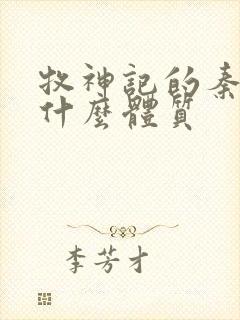 牧神記的秦
什麼體質
李芳才